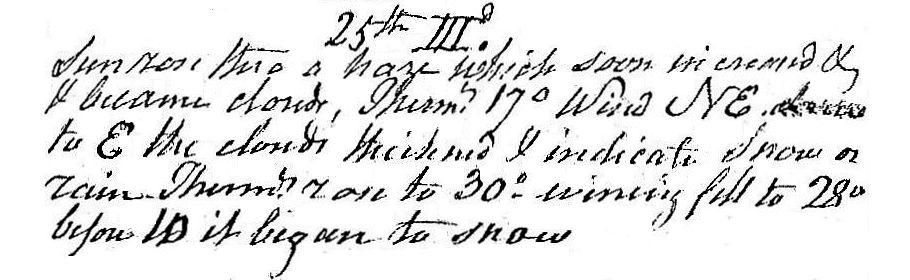 25th IIId
Sun rose thro a haze which soon increased &
& became cloudy, Thermr 17° Wind NE
to E the clouds thickened & indicate Snow or
rain Thermr rose to 30° evening fell to 28°
before 10 it began to snow